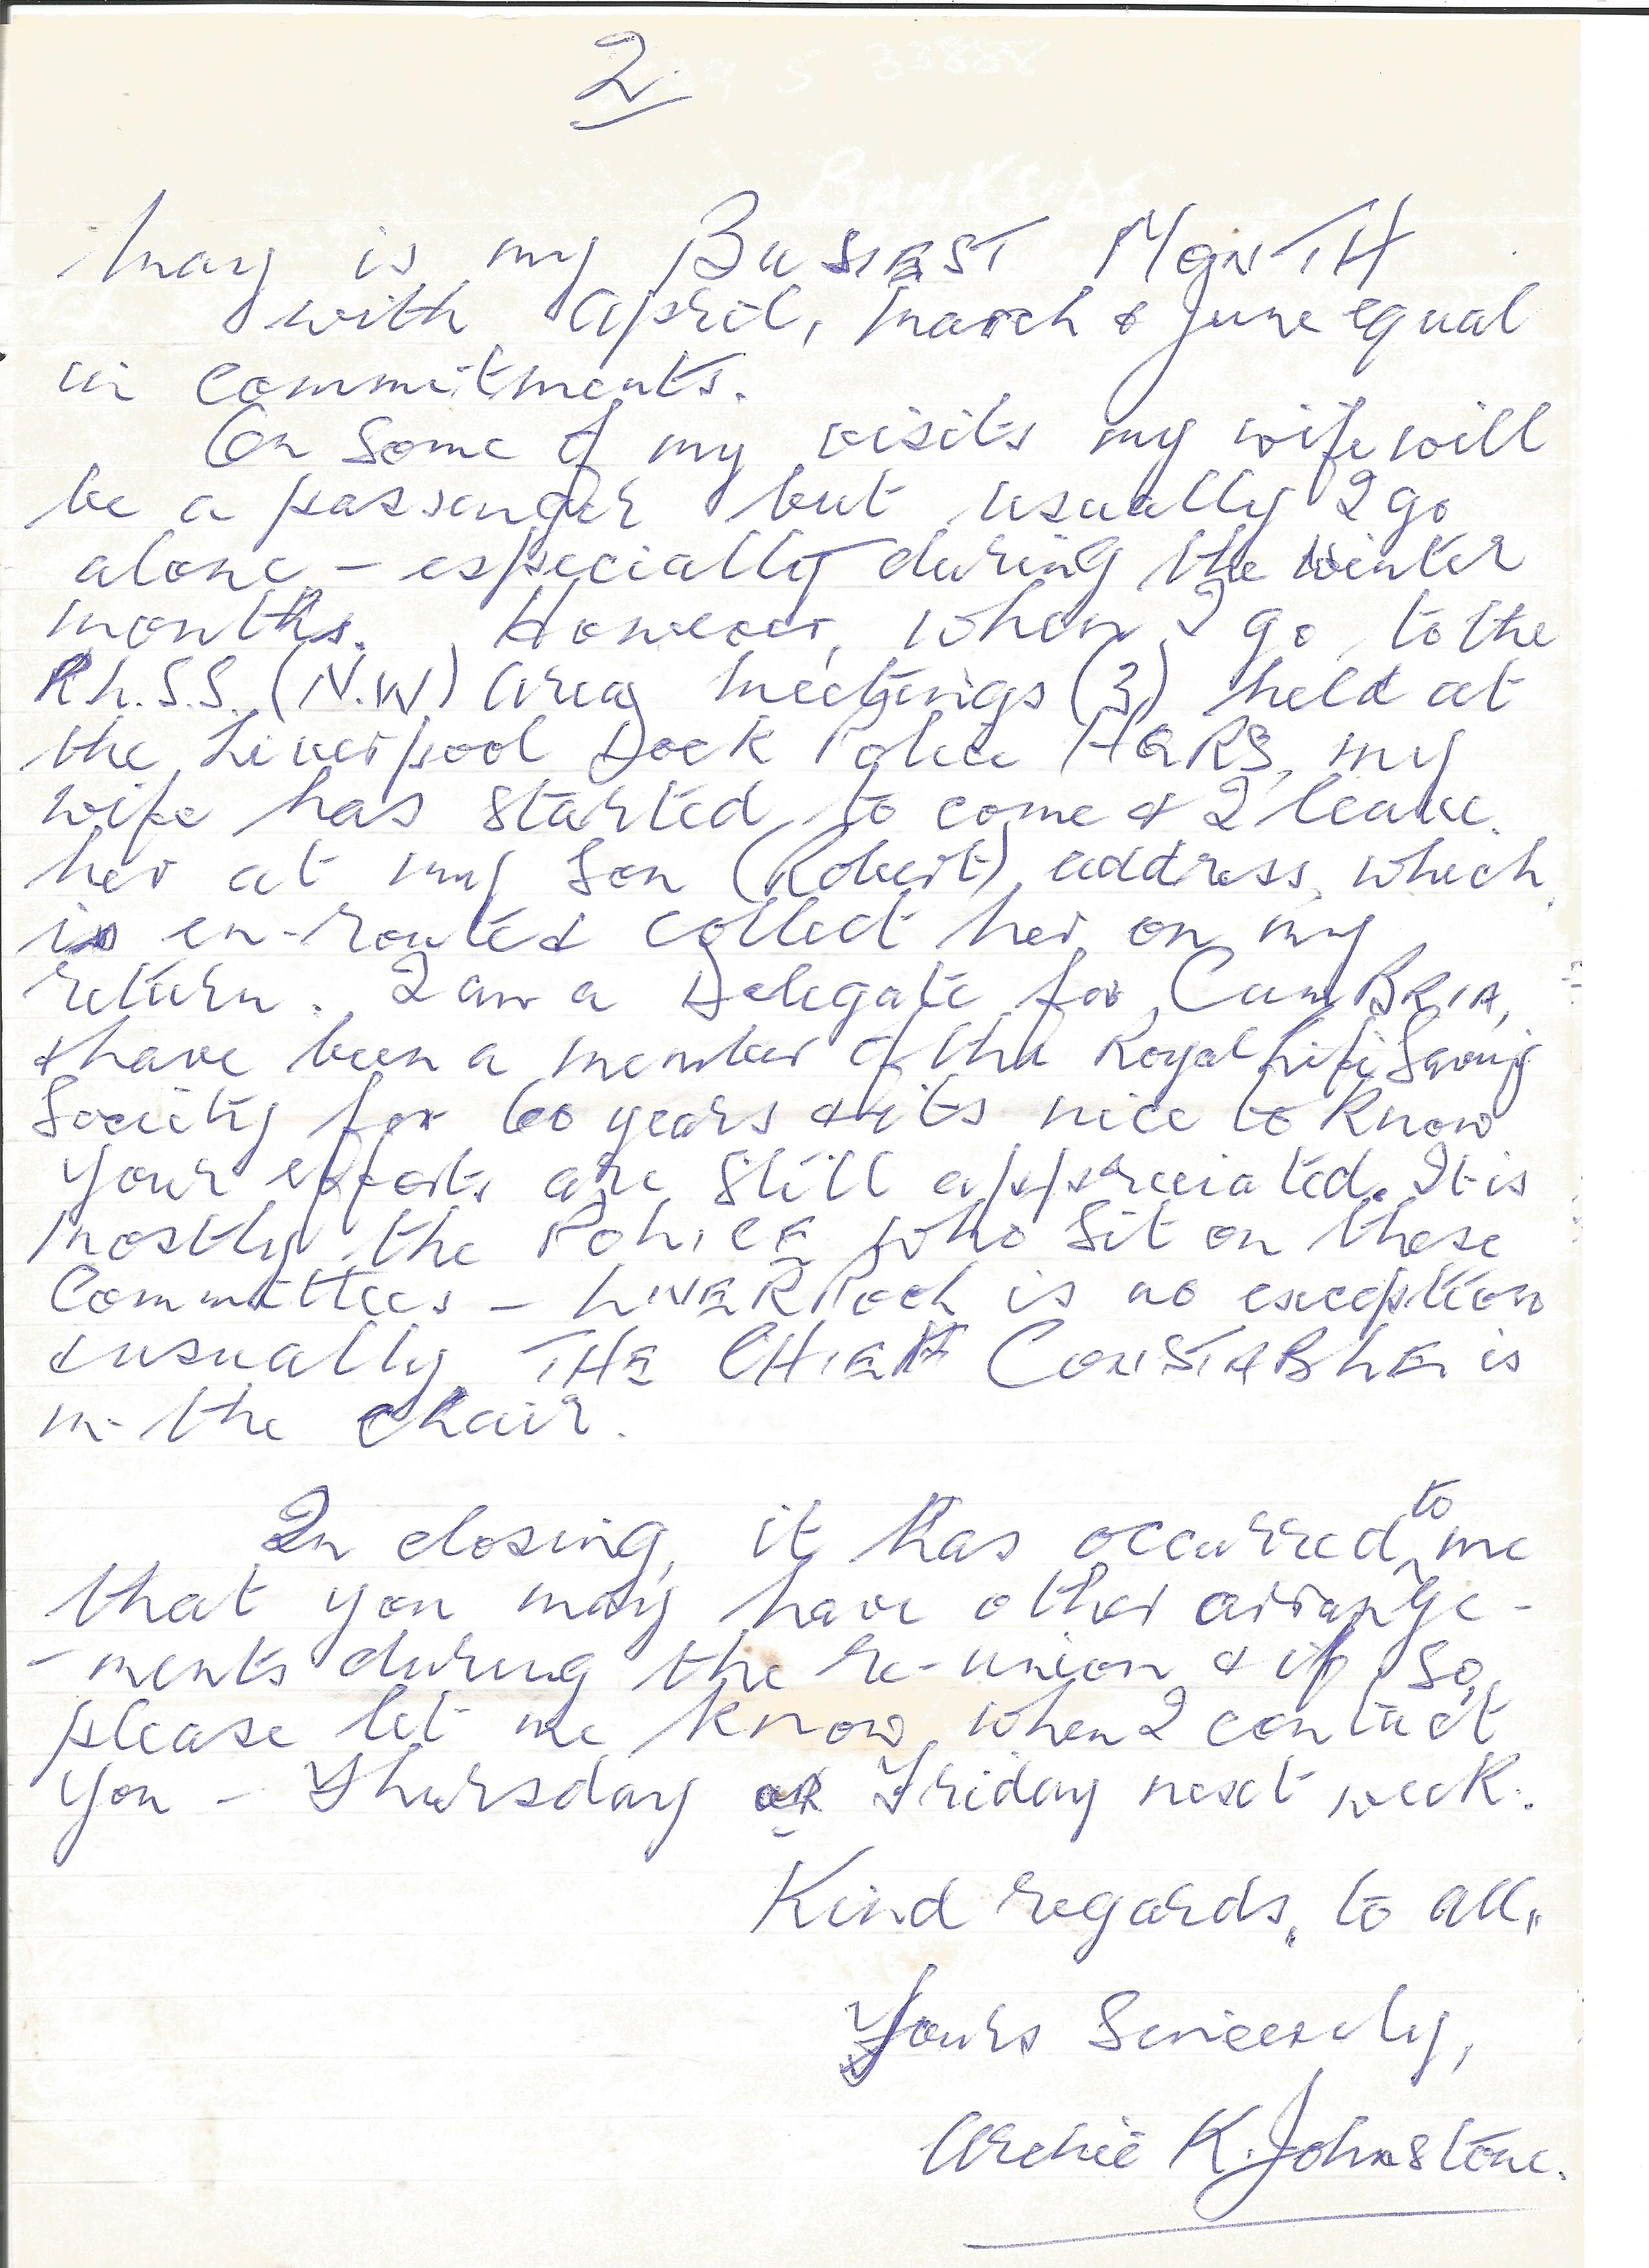 2.
May is my BUSIEST MONTH
with April, March & June equal
in commitments.
On some of my visits my wife will
be a passenger but usually I go
alone - especially during the winter
months. However, when I go to the
R.L.S.S. (N.W) Area Meetings (3) held at
the Liverpool Dock Police HQRS, my
wife has started to come & I leave
her at my Son (Robert) address, which
is en-route & collect her on my
return. I am a Delegate for CumBRIA,
& have been a member of the Royal Life Saving
Society for 60 years & its nice to know
your efforts are still appreciated. It is
mostly the POLICE who sit on these
Committees - LIVERPOOL is no exception
& usually THE CHIEF CONSTABLE is
in the chair.
In closing, it has occurred to me
that you may have other arrange-
-ments during the re-union & if so,
please let me know when I contact
you - Thursday or Friday next week.
Kind regards, to all,
Yours Sincerely,
Archie K. Johnstone.